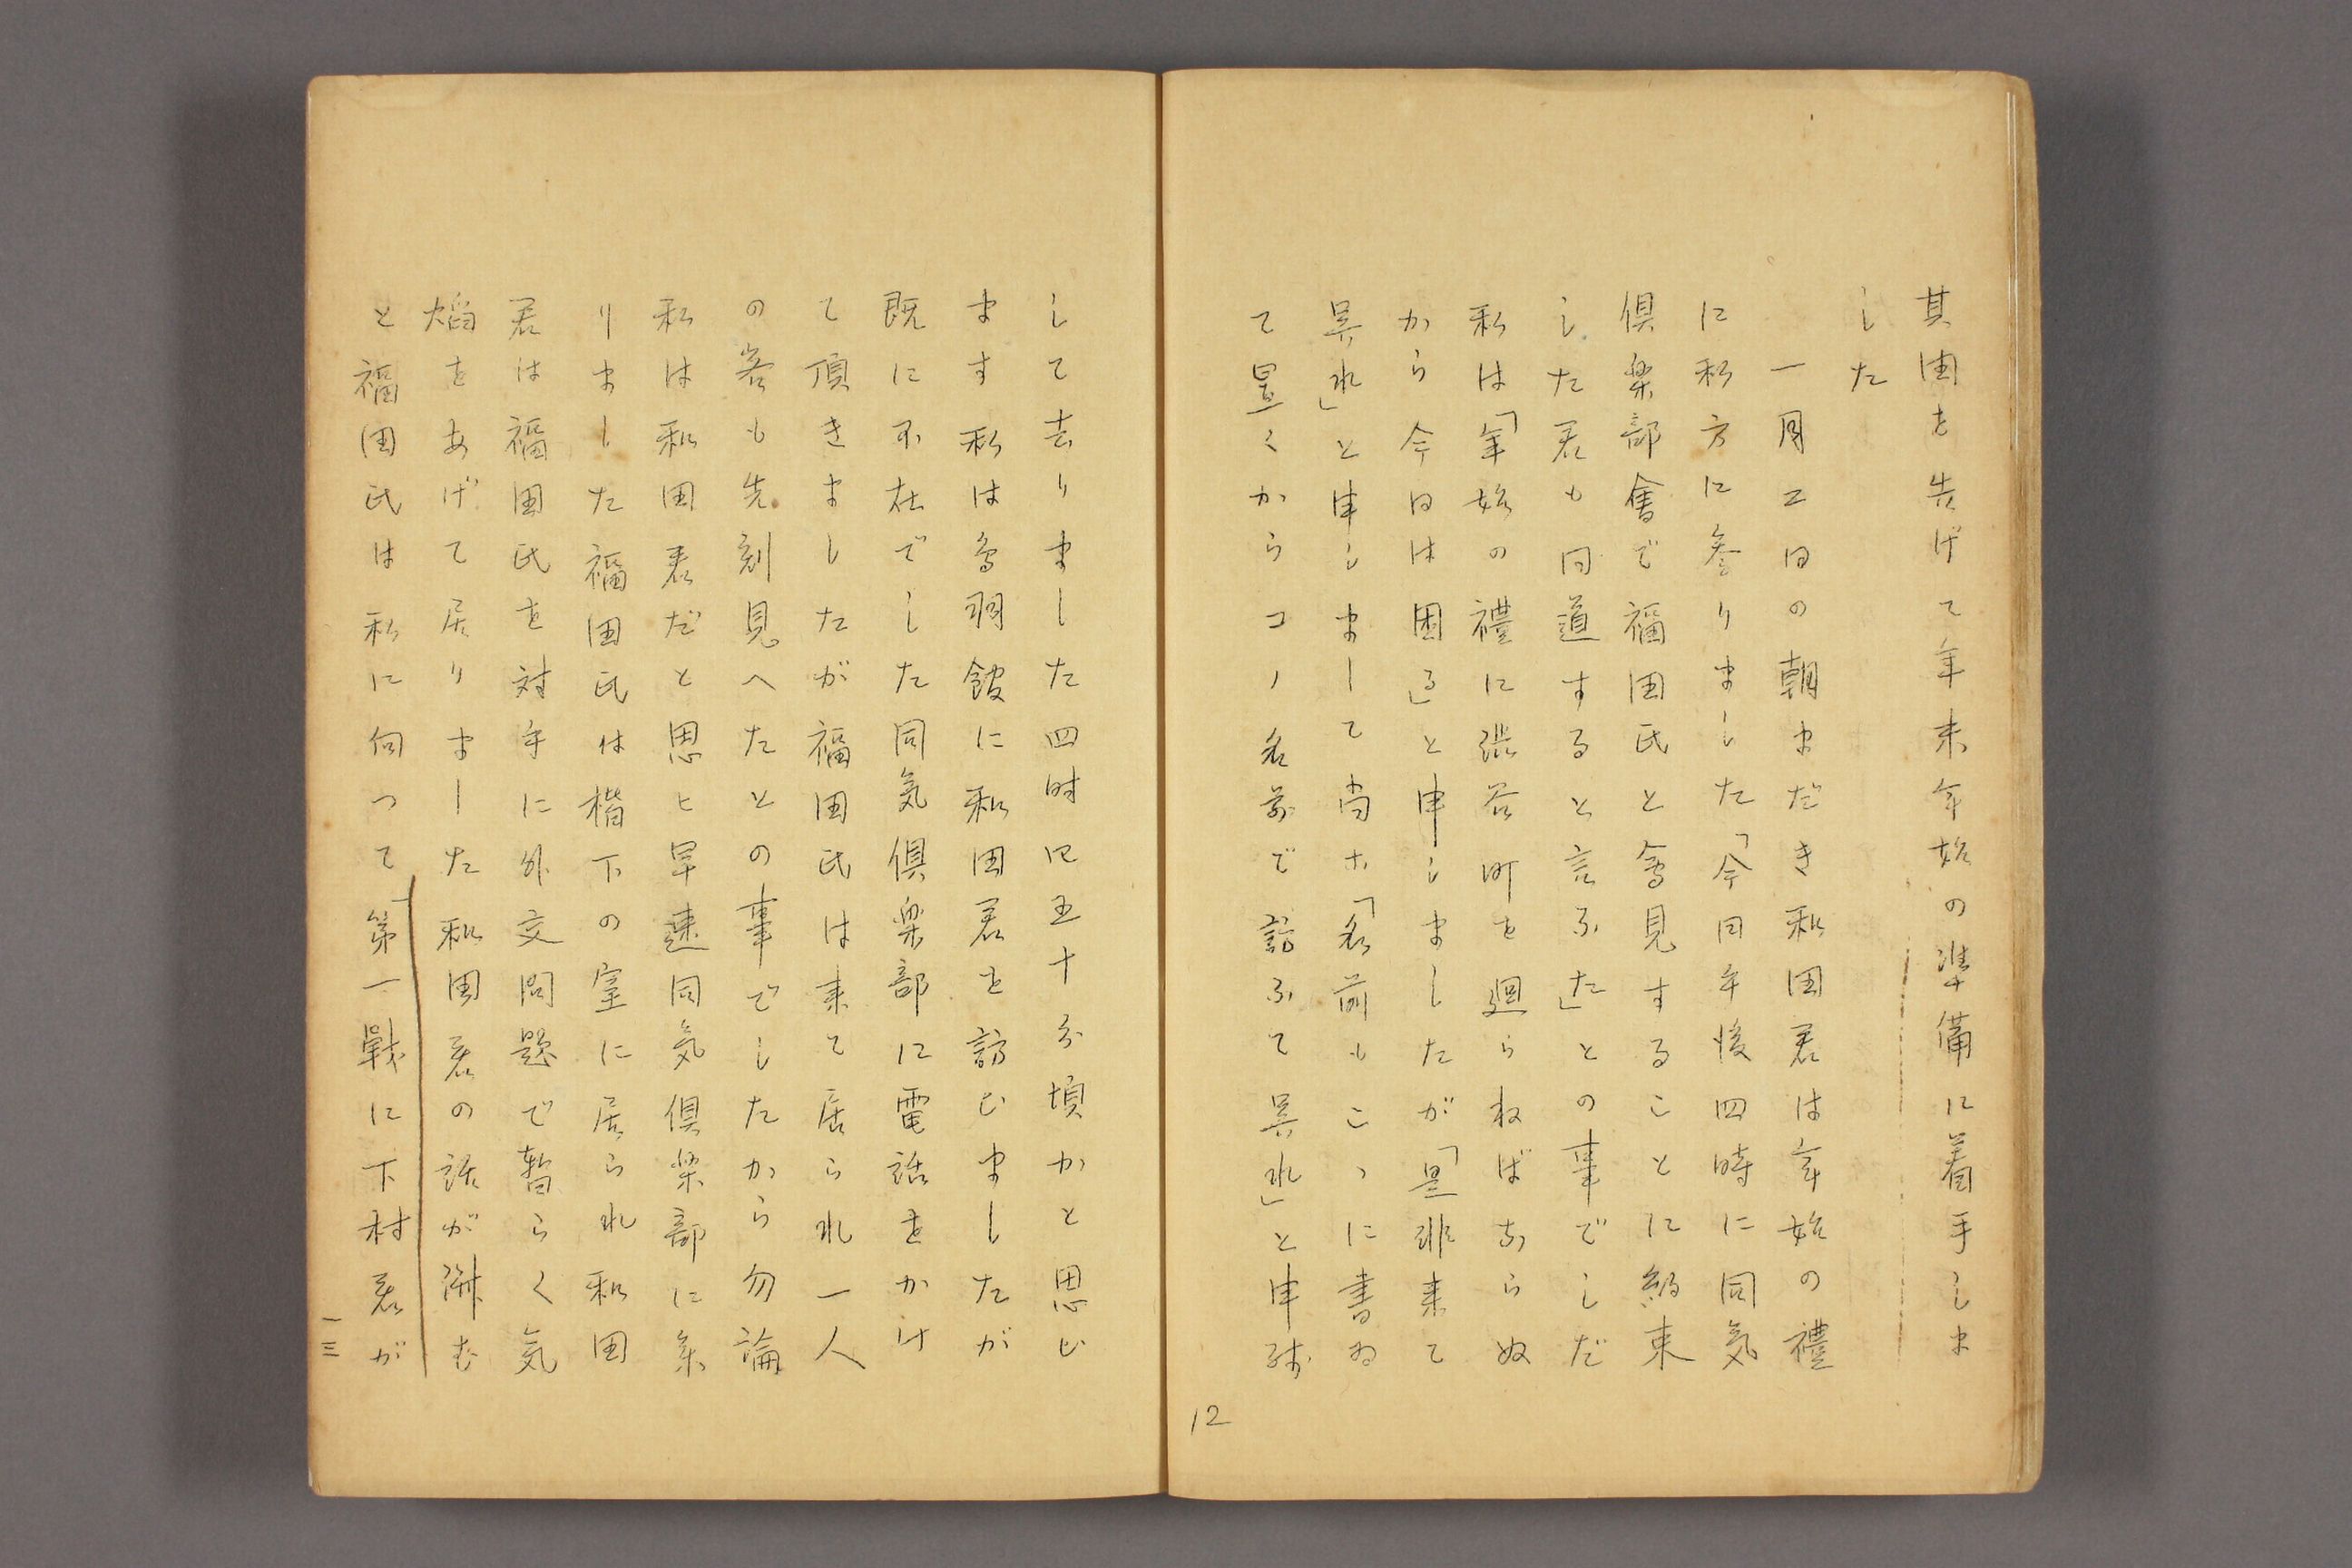 其由を告げて年末年始の準備に着手しま
した
一月二日の朝まだき和田君は年始の禮
に私方に参りました「今日午後四時に同気
倶楽部會で福田氏と會見することに約束
した君も同道すると言ふた」との事でしだ
私は「年始の禮に澁谷町を廻らねばならぬ
から今日は困る」と申しましたが「是非来て
呉れ」と申しまして尚ホ「名前もこゝに書ゐ
て置くからコノ名前で訪ふて呉れ」と申残
12
して去りました四時四五十分頃かと思ひ
ます私は鳥羽館に和田君を訪ひましたが
既に不在でした同気倶楽部に電話をかけ
て頂きましたが福田氏は来て居られ一人
の客も先刻見へたとの事でしたから勿論
私は和田君だと思ヒ早速同気倶楽部に参
りました福田氏は楷下の室に居られ和田
君は福田氏を対手に外交問題で暫らく気
焔をあげて居りました和田君の話が済む
と福田氏は私に向つて「第一戰に下村君が
一三